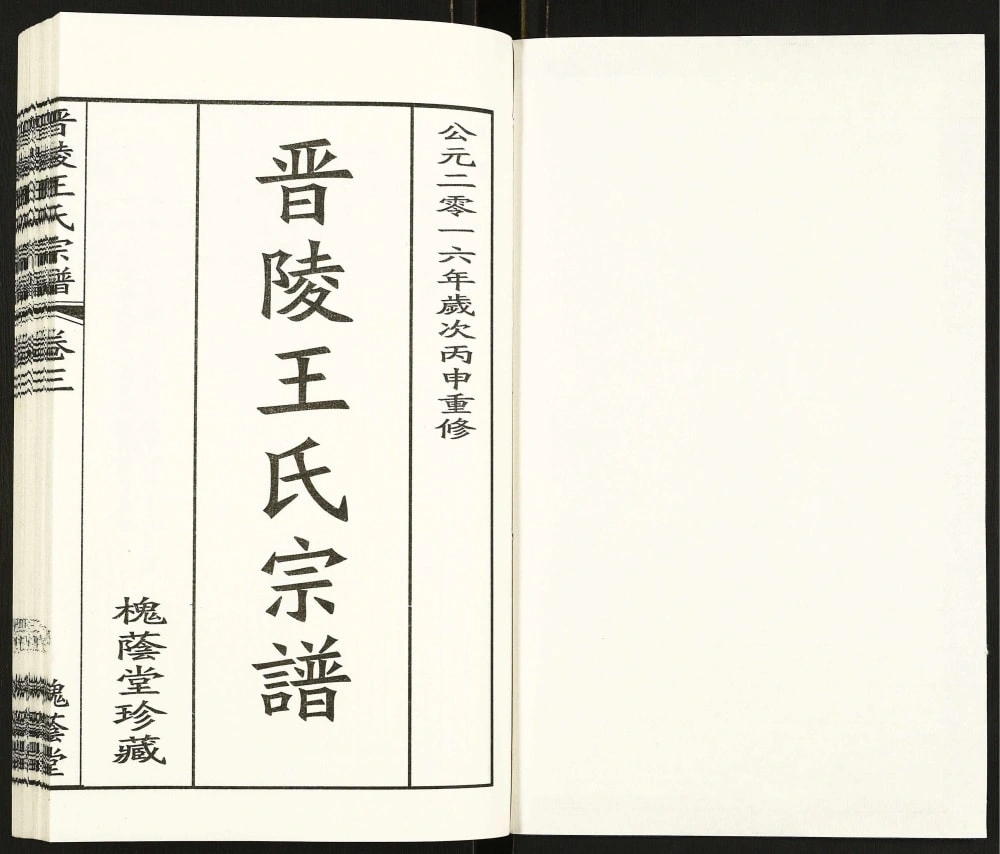 公元二零一六年歲次丙申重修
晋陵王氏宗譜
槐蔭堂珍藏
晋陵王氏宗譜 卷三 槐蔭堂